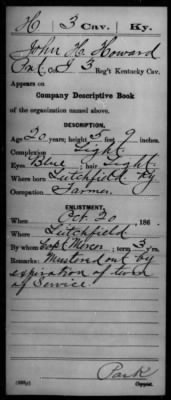 H 3 Cav. Ky.
John H. Howard
Pvt., Co. I 3 Reg't Kentucky Cav.
Appears on
Company Descriptive Book
of the organization named above.
DESCRIPTION.
Age 20 years; height 5 feet 9 inches.
Complexion Light
Eyes Blue; hair Light
Where born Litchfield Ky
Occupation Farmer
ENLISTMENT.
When Oct. 20, 186
Where Litchfield
By whom Capt Mercer; term 3 y'rs.
Remarks: Mustered out by
expiration of term
of Service.
Park
Copyist.